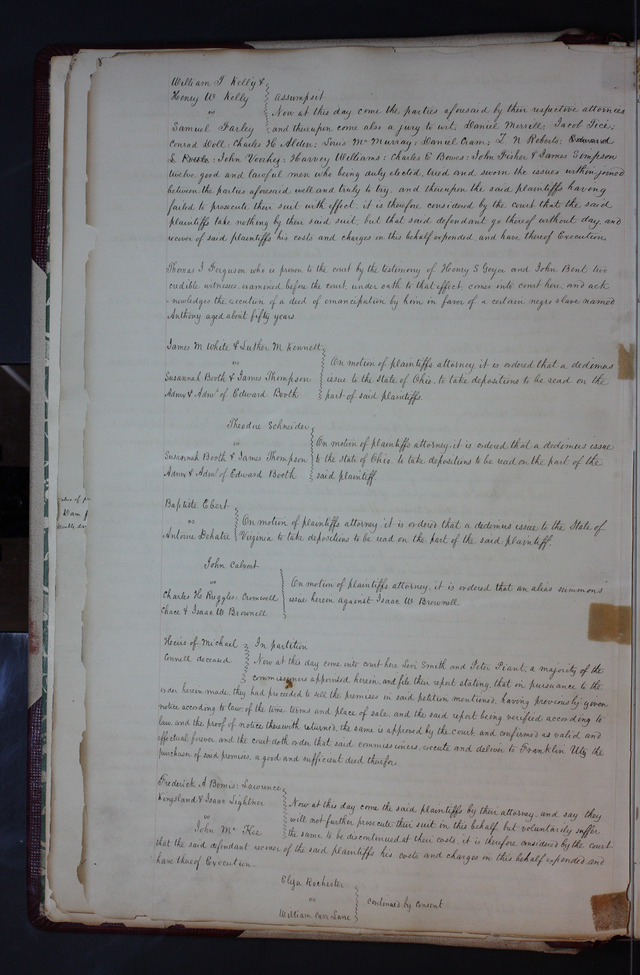 William T Kelly &
Henry W Kelly
vs
Samuel Farley
Assumpsit
Now at this day come the parties aforesaid by their respective attornies
and thereupon come also a jury to wit, Daniel Merrell; Jacob Tice;
Conrad Doll: Charles H. Alden; Louis McMurray; Daniel Crane; T. N Roberts; Edward
L : John Voorhey: Harvey Williams: Charles E Bowes: John Fisher & James Simpson
twelve good and lawful men who being duly elected, tried and sworn the issues within joined
between the parties aforesaid well and truly to try, and thereupon the said plaintiffs having
failed to prosecute their suit with effect. it is therefore considered by the court that the said
plaintiffs take nothing by their said suit, but that said defendant go thereof without day, and
recover of said plaintiffs his costs and charges in this behalf expended, and have thereof Execution
Thomas J Ferguson who is proven to the court by the testimony of Henry S Geyer and John Bent two
credible witnesses, examined before the court, under oath to that effect, comes into court here, and ack
-nowledges the execution of a deed of emancipation by him in favor of a certain negro slave named
Anthony aged about fifty years
James M White & Luther M Kennett
vs
Susannah Booth & James Thompson
Admx & Admr of Edward Booth
On motion of plaintiffs attorney, it is ordered that a dedimus
issue to the State of Ohio, to take depositions to be read on the
part of said plaintiffs.
Theodore Schneider
vs
Susannah Booth & James Thompson
Admx & Admr of Edward Booth
On motion of plaintiffs attorney, it is ordered that a dedimus issue
to the State of Ohio to take depositions to be read on the part of the
said plaintiff
Baptiste Ebert
vs
Antoine Dehatre
On motion of plaintiffs attorney it is ordered that a dedimus issue to the State of
Virginia to take depositions to be read on the part of the said plaintiff.
John Calvert
vs
Charles H Ruggles. Cromwell
Chace & Isaac W Brownell
On motion of plaintiffs attorney, it is ordered that an alias summons
issue herein against Isaac W. Brownell
Heirs of Michael
Connell deceased
In partition
Now at this day come into court here Levi Smith and Peter Piant, a majority of the
commissioners appointed herein, and file their report stating, that in pursuance to the
order herein made, they had proceeded to sell the premises in said petition mentioned, having previously given
notice according to law, of the time terms and place of sale, and the said report being verified according to
law and the proof of notice therewith returned, the same is approved by the court, and confirmed as valid and
effectual forever, and the court doth order, that said commissioners, execute and deliver to Franklin Utz the
purchaser of said premises, a good and sufficient deed therefor.
Frederick A Bemis: Lawrence
Kingsland & Isaac Lightner
vs
John McKee
Now at this day come the said plaintiffs by their attorney, and say they
will not further prosecute their suit in this behalf, but voluntarily suffer
the same to be discontinued at their costs, it is therefore considered by the court
that the said defendant recover of the said plaintiffs his costs and charges in this behalf expended and
have thereof Execution.
Eliza Rochester
vs
William Carr Lane
Continued by consent